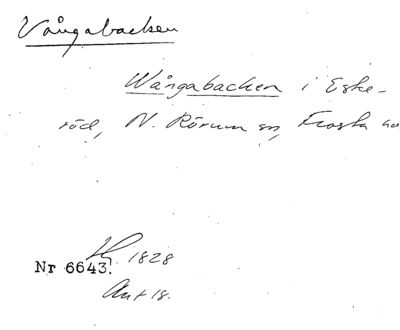 Vångabacken
Wångabacken i Eske-
röd, N. Rörum sn, Frosta hd
Nr 6643. 1828
Ant 18.